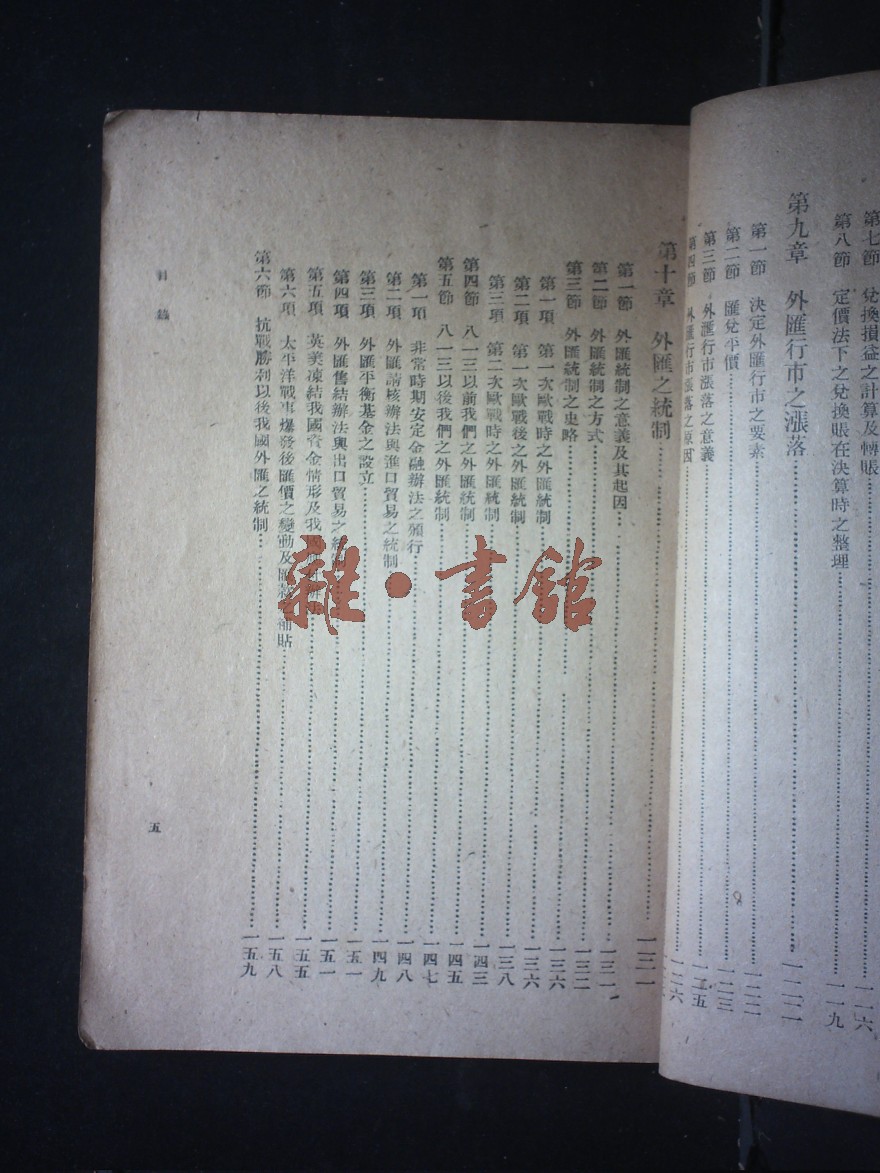 第七節　兌換損益之計算及轉賬……一一六
第八節　定價法下之兌換賬在決算時之整理……一一九
第九章　外匯行市之漲落……一二二
第一節　決定外匯行市之要素……一二二
第二節　匯兌平價……一二三
第三節　外滙行市漲落之意義……一二五
第四節　外匯行市漲落之原因……一二六
第十章　外匯之統制……一三一
第一節　外匯統制之意義及其起因……一三一
第二節　外匯統制之方式……一三二
第三節　外匯統制之史略……一三六
第一項　第一次歐戰時之外匯統制……一三六
第二項　第一次歐戰後之外匯統制……一三八
第三項　第二次歐戰時之外匯統制……一四三
第四節　八一三以前我們之外匯統制……一四五
第五節　八一三以後我們之外匯統制……一四七
第一項　非常時期安定金融辦法之頒行……一四八
第二項　外匯請核辦法與進口貿易之統制……一四九
第三項　外匯平衡基金之設立……一五一
第四項　外匯售結辦法與出口貿易之統制……一五一
第五項　英美凍結我國資金情形及我國……一五五
第六項　太平洋戰事爆發後匯價之變動及匯款之補貼……一五八
第六節　抗戰勝利以後我國外匯之統制……一五九
目錄
五
雜·書館